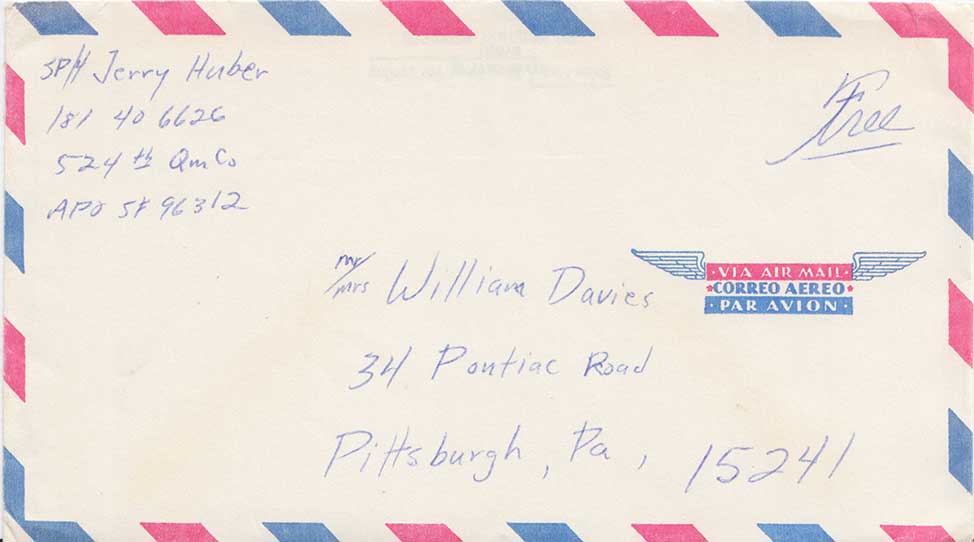 SP/4 Jerry Huber
181 40 6626
524th QmCo
APO SF 96312
Free
mr/mrs William Davies
34 Pontiac Road
Pittsburgh, Pa, 15241
·VIA AIR MAIL·
★CORREO AEREO★
·PAR AVION·